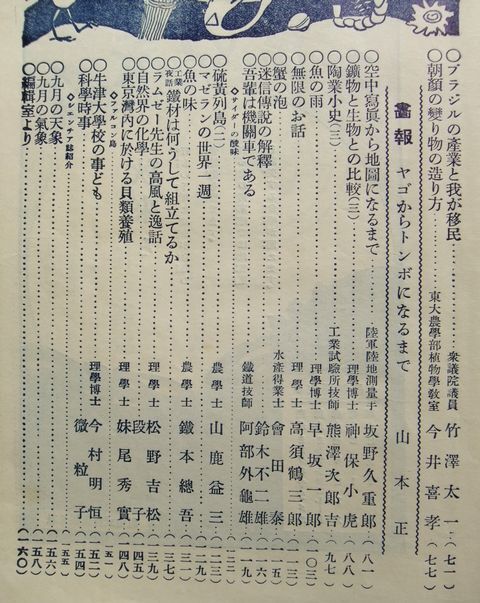 ○ブラジルの産業と我が移民……衆議院議員 竹澤太一…(七一)
○朝顔の變り物の造り方……東大農學部植物學教室 今井喜孝…(七七)
畫報 ヤゴからトンボになるまで 山本正
○空中寫眞から地圖になるまで……陸軍陸地測量手 坂野久重郎…(八一)
○鑛物と生物との比較(三)……理學博士 神保小虎…(八八)
○陶業小史(三)……工業試驗所技師 熊澤次郎吉…(九七)
○魚の雨……理學博士 早坂一郎…(一〇三)
○無限のお話……理學士 高須鶴三郎…(一一三)
○蟹の泡……水產得業士 會田泰…
○迷信傳說の解釋……鈴木不二雄…(一一六)
○吾輩は機關車である……鐵道技師 阿部外龜雄…(一一九)
◇サイダーの酸味……
○硫黃列島(二)……農學士 山鹿益三…(一二三)
○マゼランの世界一週……
○魚の味……農學士 鐵本總吾…(一三七)
○工業夜話 鐵材は何うして組立てるか……
○ラムゼー先生の高風と逸話……理學士 松野吉松…(一三九)
○自然界の化學……段子…(一四五)
○東京灣內に於ける貝類養殖……理學士 妹尾秀實…(一四八)
◇ファルコン島……
○牛津大學校の事ども……理學博士 今村明恒…(一五二)
○科學時事……微粒子…(一五四)
◇シエンチア誌紹介……
○九月の天象……(一五六)
○九月の氣象……(一五八)
○編輯室より……(一六〇)